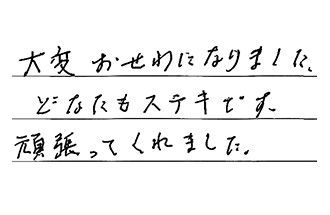 大変 おせわになりました。
どなたもステキです。
頑張ってくれました。